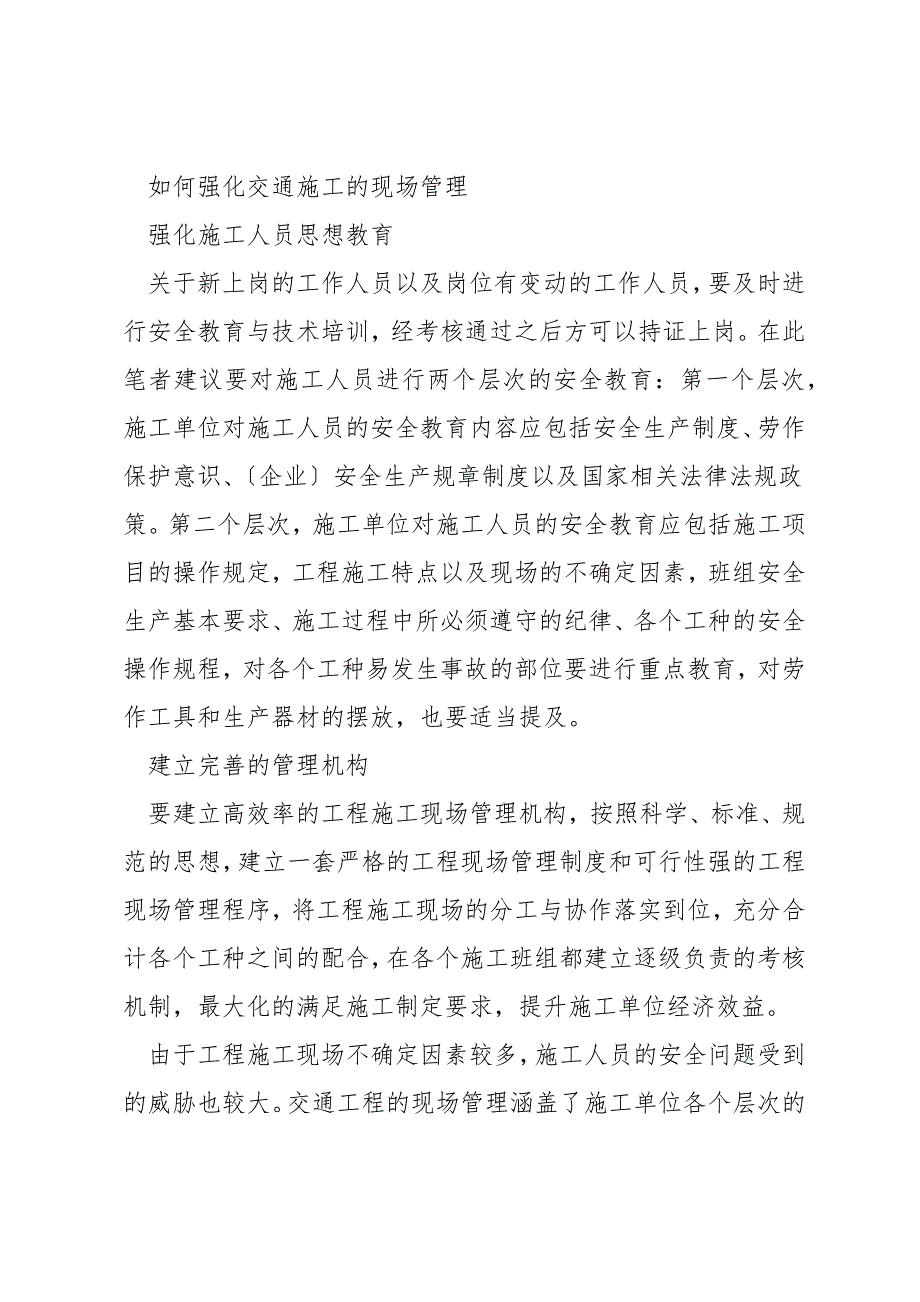 如何强化交通施工的现场管理
强化施工人员思想教育
关于新上岗的工作人员以及岗位有变动的工作人员，要及时进
行安全教育与技术培训，经考核通过之后方可以持证上岗。在此
笔者建议要对施工人员进行两个层次的安全教育：第一个层次，
施工单位对施工人员的安全教育内容应包括安全生产制度、劳作
保护意识、〔企业〕安全生产规章制度以及国家相关法律法规政
策。第二个层次，施工单位对施工人员的安全教育应包括施工项
目的操作规定，工程施工特点以及现场的不确定因素，班组安全
生产基本要求、施工过程中所必须遵守的纪律、各个工种的安全
操作规程，对各个工种易发生事故的部位要进行重点教育，对劳
作工具和生产器材的摆放，也要适当提及。
建立完善的管理机构
要建立高效率的工程施工现场管理机构，按照科学、标准、规
范的思想，建立一套严格的工程现场管理制度和可行性强的工程
现场管理程序，将工程施工现场的分工与协作落实到位，充分合
计各个工种之间的配合，在各个施工班组都建立逐级负责的考核
机制，最大化的满足施工制定要求，提升施工单位经济效益。
由于工程施工现场不确定因素较多，施工人员的安全问题受到
的威胁也较大。交通工程的现场管理涵盖了施工单位各个层次的